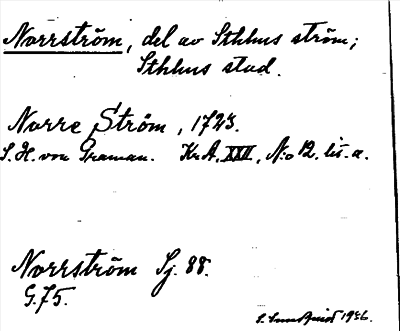 Norrström, del av Sthlms ström;
Sthlms stad.
Norre Ström, 1723.
S. H. von Graman. KrA, XXII, N:o 12. lit. a.
Norrström Sj. 88.
G. 75.
1936.